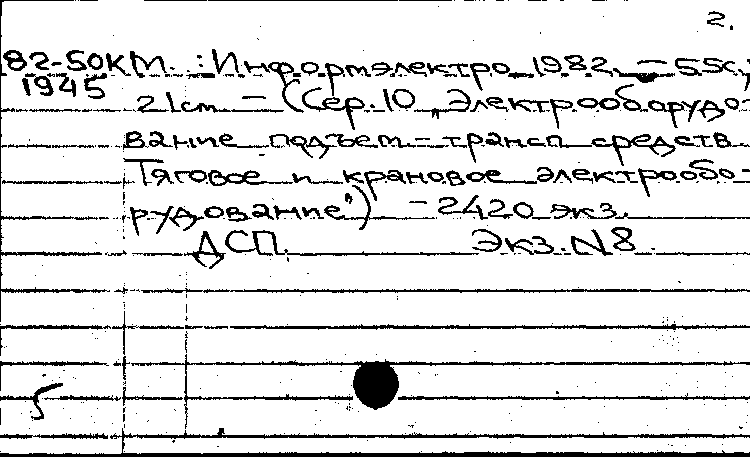 2.
82-50КМ. : Информэлектро, 1982, – 55с.;
1945 21cm – (Сер.10 „Электрооборудо-
вание подъем-трансп средств
Тяговое и крановое электрообо-
рудование") – 2420 экз.
ДСП. Экз. N8.
5